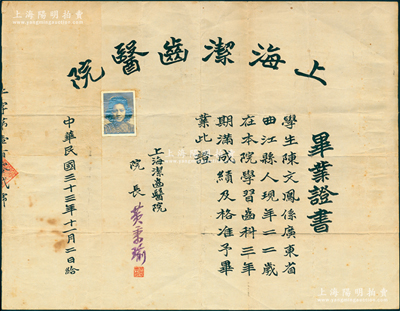 上海陽明拍賣
www.ymauction.com
上海潔齒醫院
畢業證書
學生陳文鳳係廣東省
曲江縣人現年二二歲
在本院學習齒科三年
期滿成績及格准予畢
業此證
上海潔齒醫院
院長
中華民國三十三年十一月二日給
上海陽明拍賣
www.ymauction.com